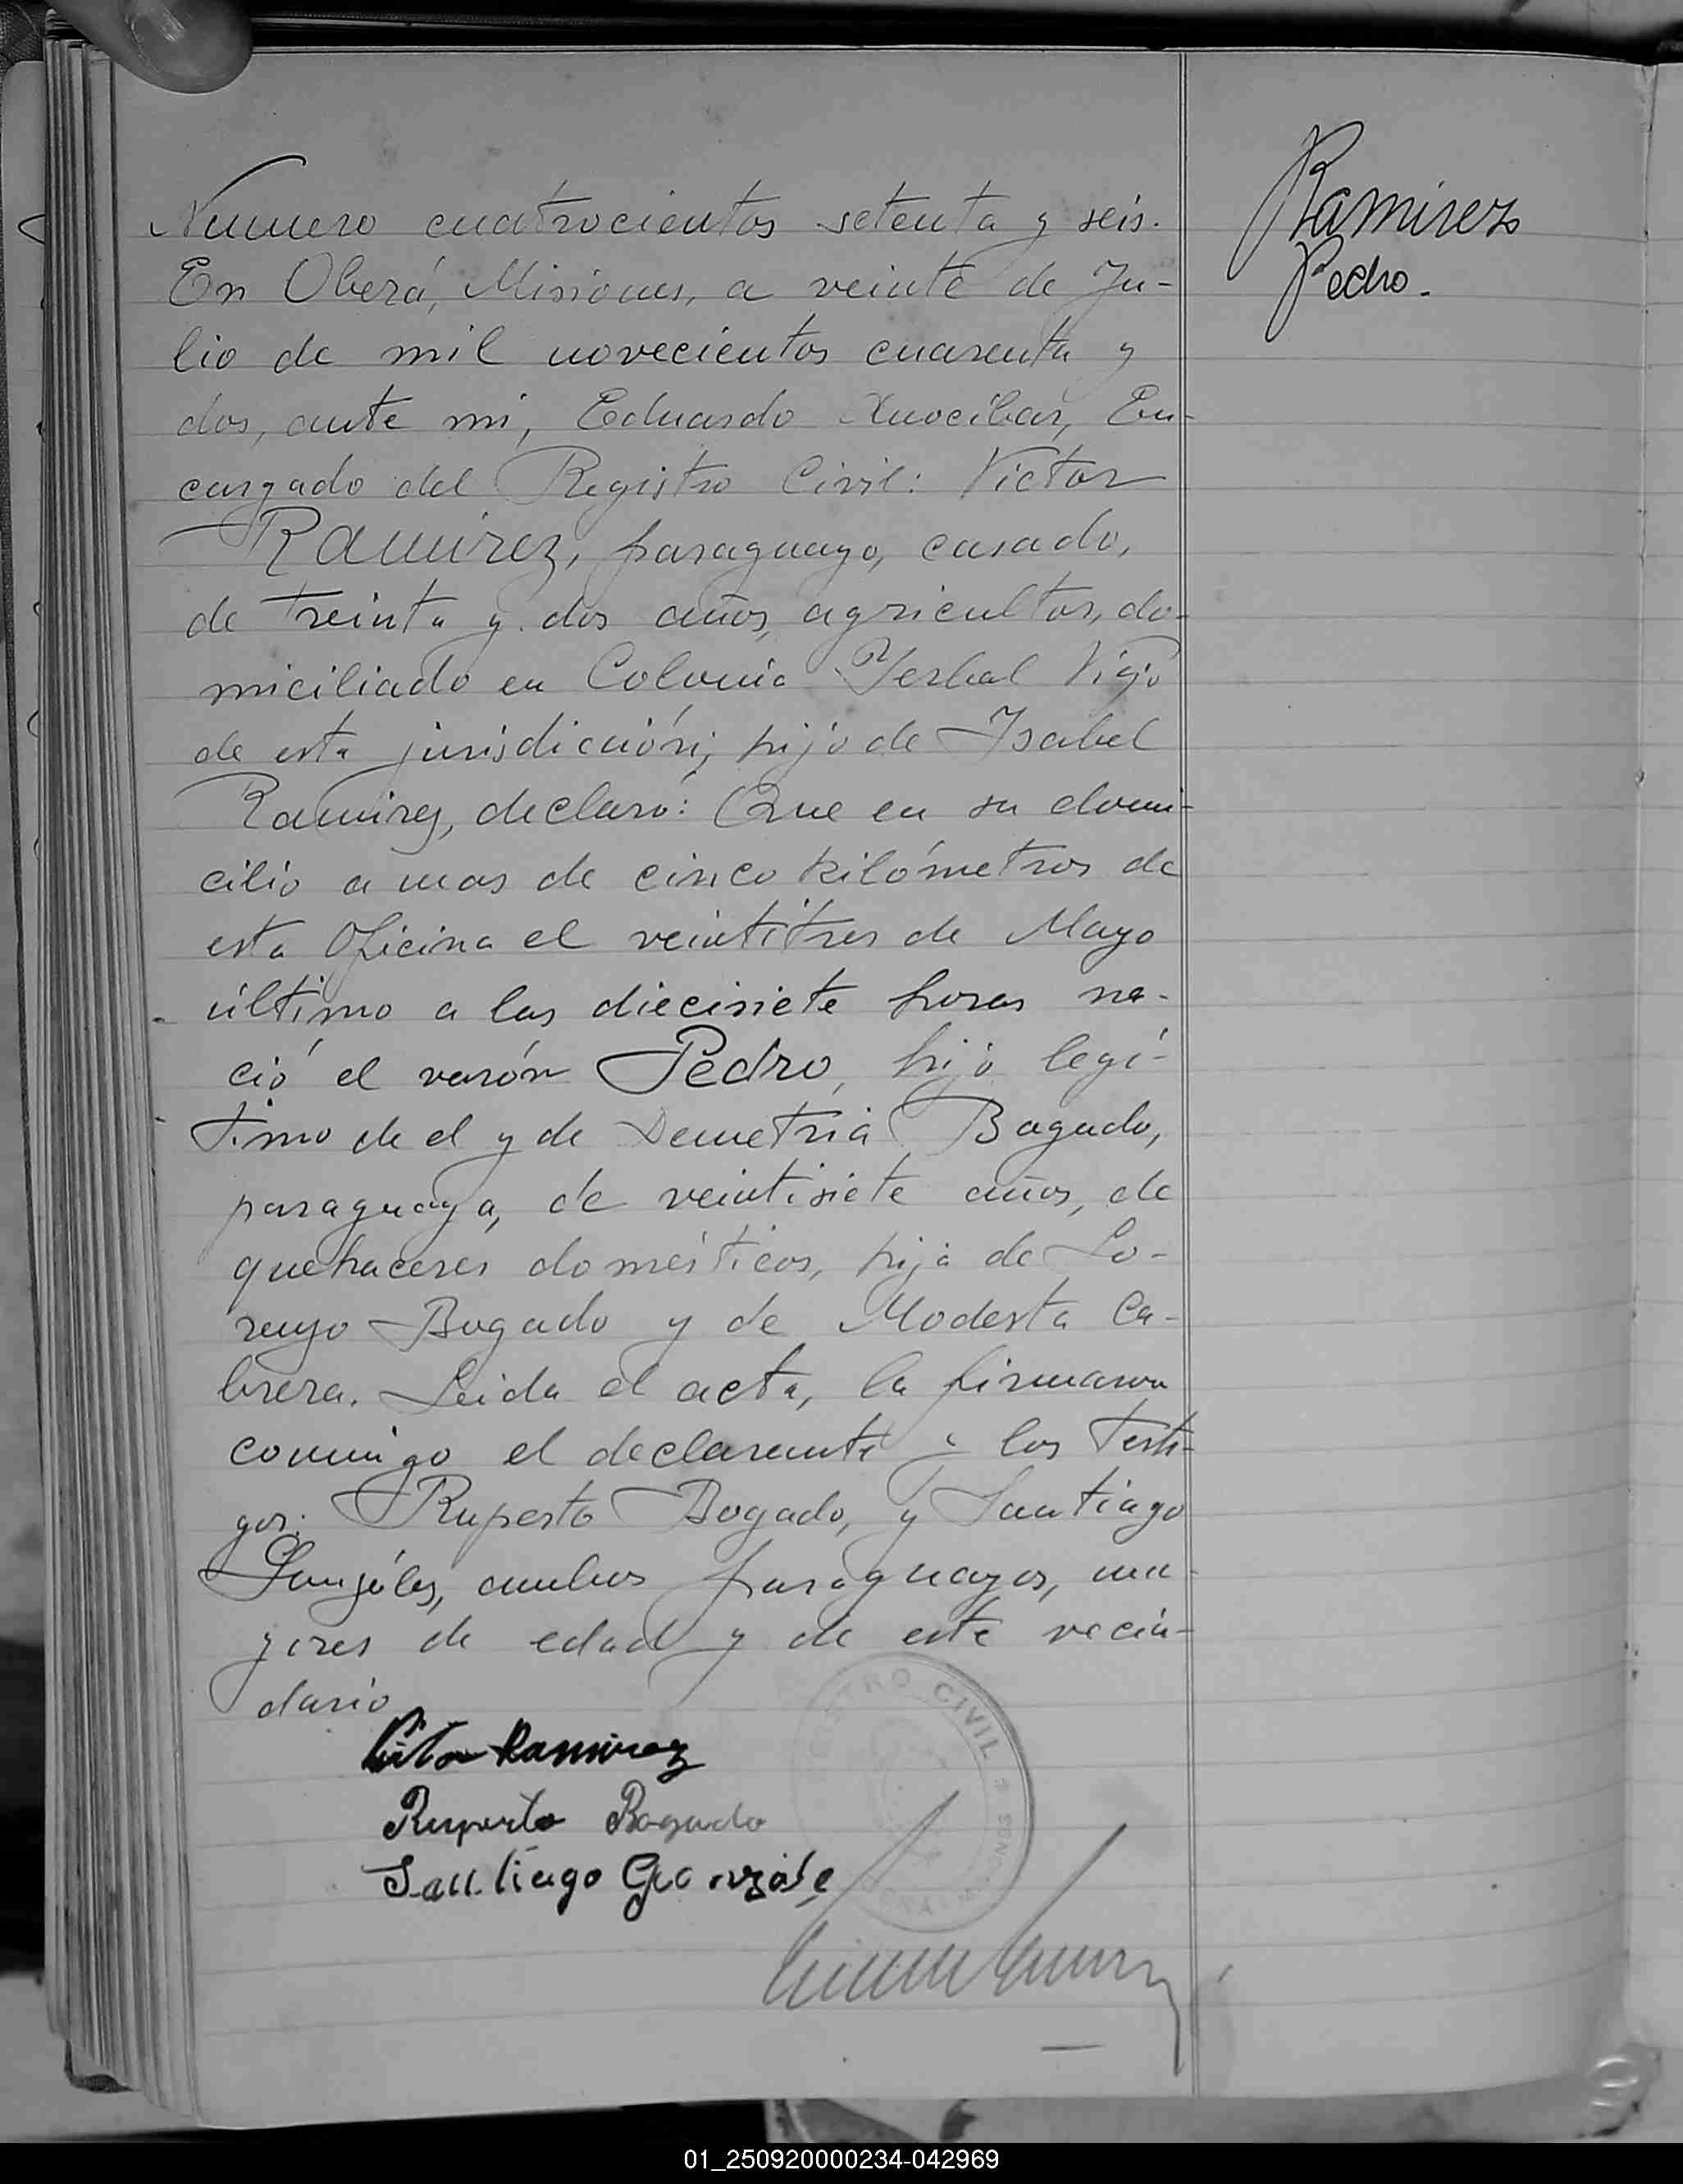 Ramirez
Pedro.
Numero cuatrocientos setenta y seis.
En Oberá, Misiones, a veinte de Ju-
lio de mil novecientos cuarenta y
dos, ante mi, Eduardo En-
cargado del Registro Civil: Victor
Ramirez, paraguayo, casado,
de treinta y dos años, agricultor, do-
miciliado en Colonia Yerbal Viejo
de esta jurisdicción; hijo de Isabel
Ramirez, declaró: Que en su domi-
cilio a mas de cinco kilómetros de
esta Oficina el veintitres de Mayo
último a las diecisiete horas na-
ció el varón Pedro, hijo legí-
timo de el y de Demetria Bogado,
paraguaya, de veintisiete años, de
quehaceres domésticos, hija de Lo-
renzo Bogado y de Modesta Ca-
brera. Leida el acta, la firmaron
conmigo el declarante y los testi-
gos: Ruperto Bogado, y Santiago
Gonzáles, ambos paraguayos, ma-
yores de edad y de este vecin-
dario
Victor Ramirez
Ruperto Bogado
Santiago Gonzale
REGISTRO CIVIL
01_250920000234-042969